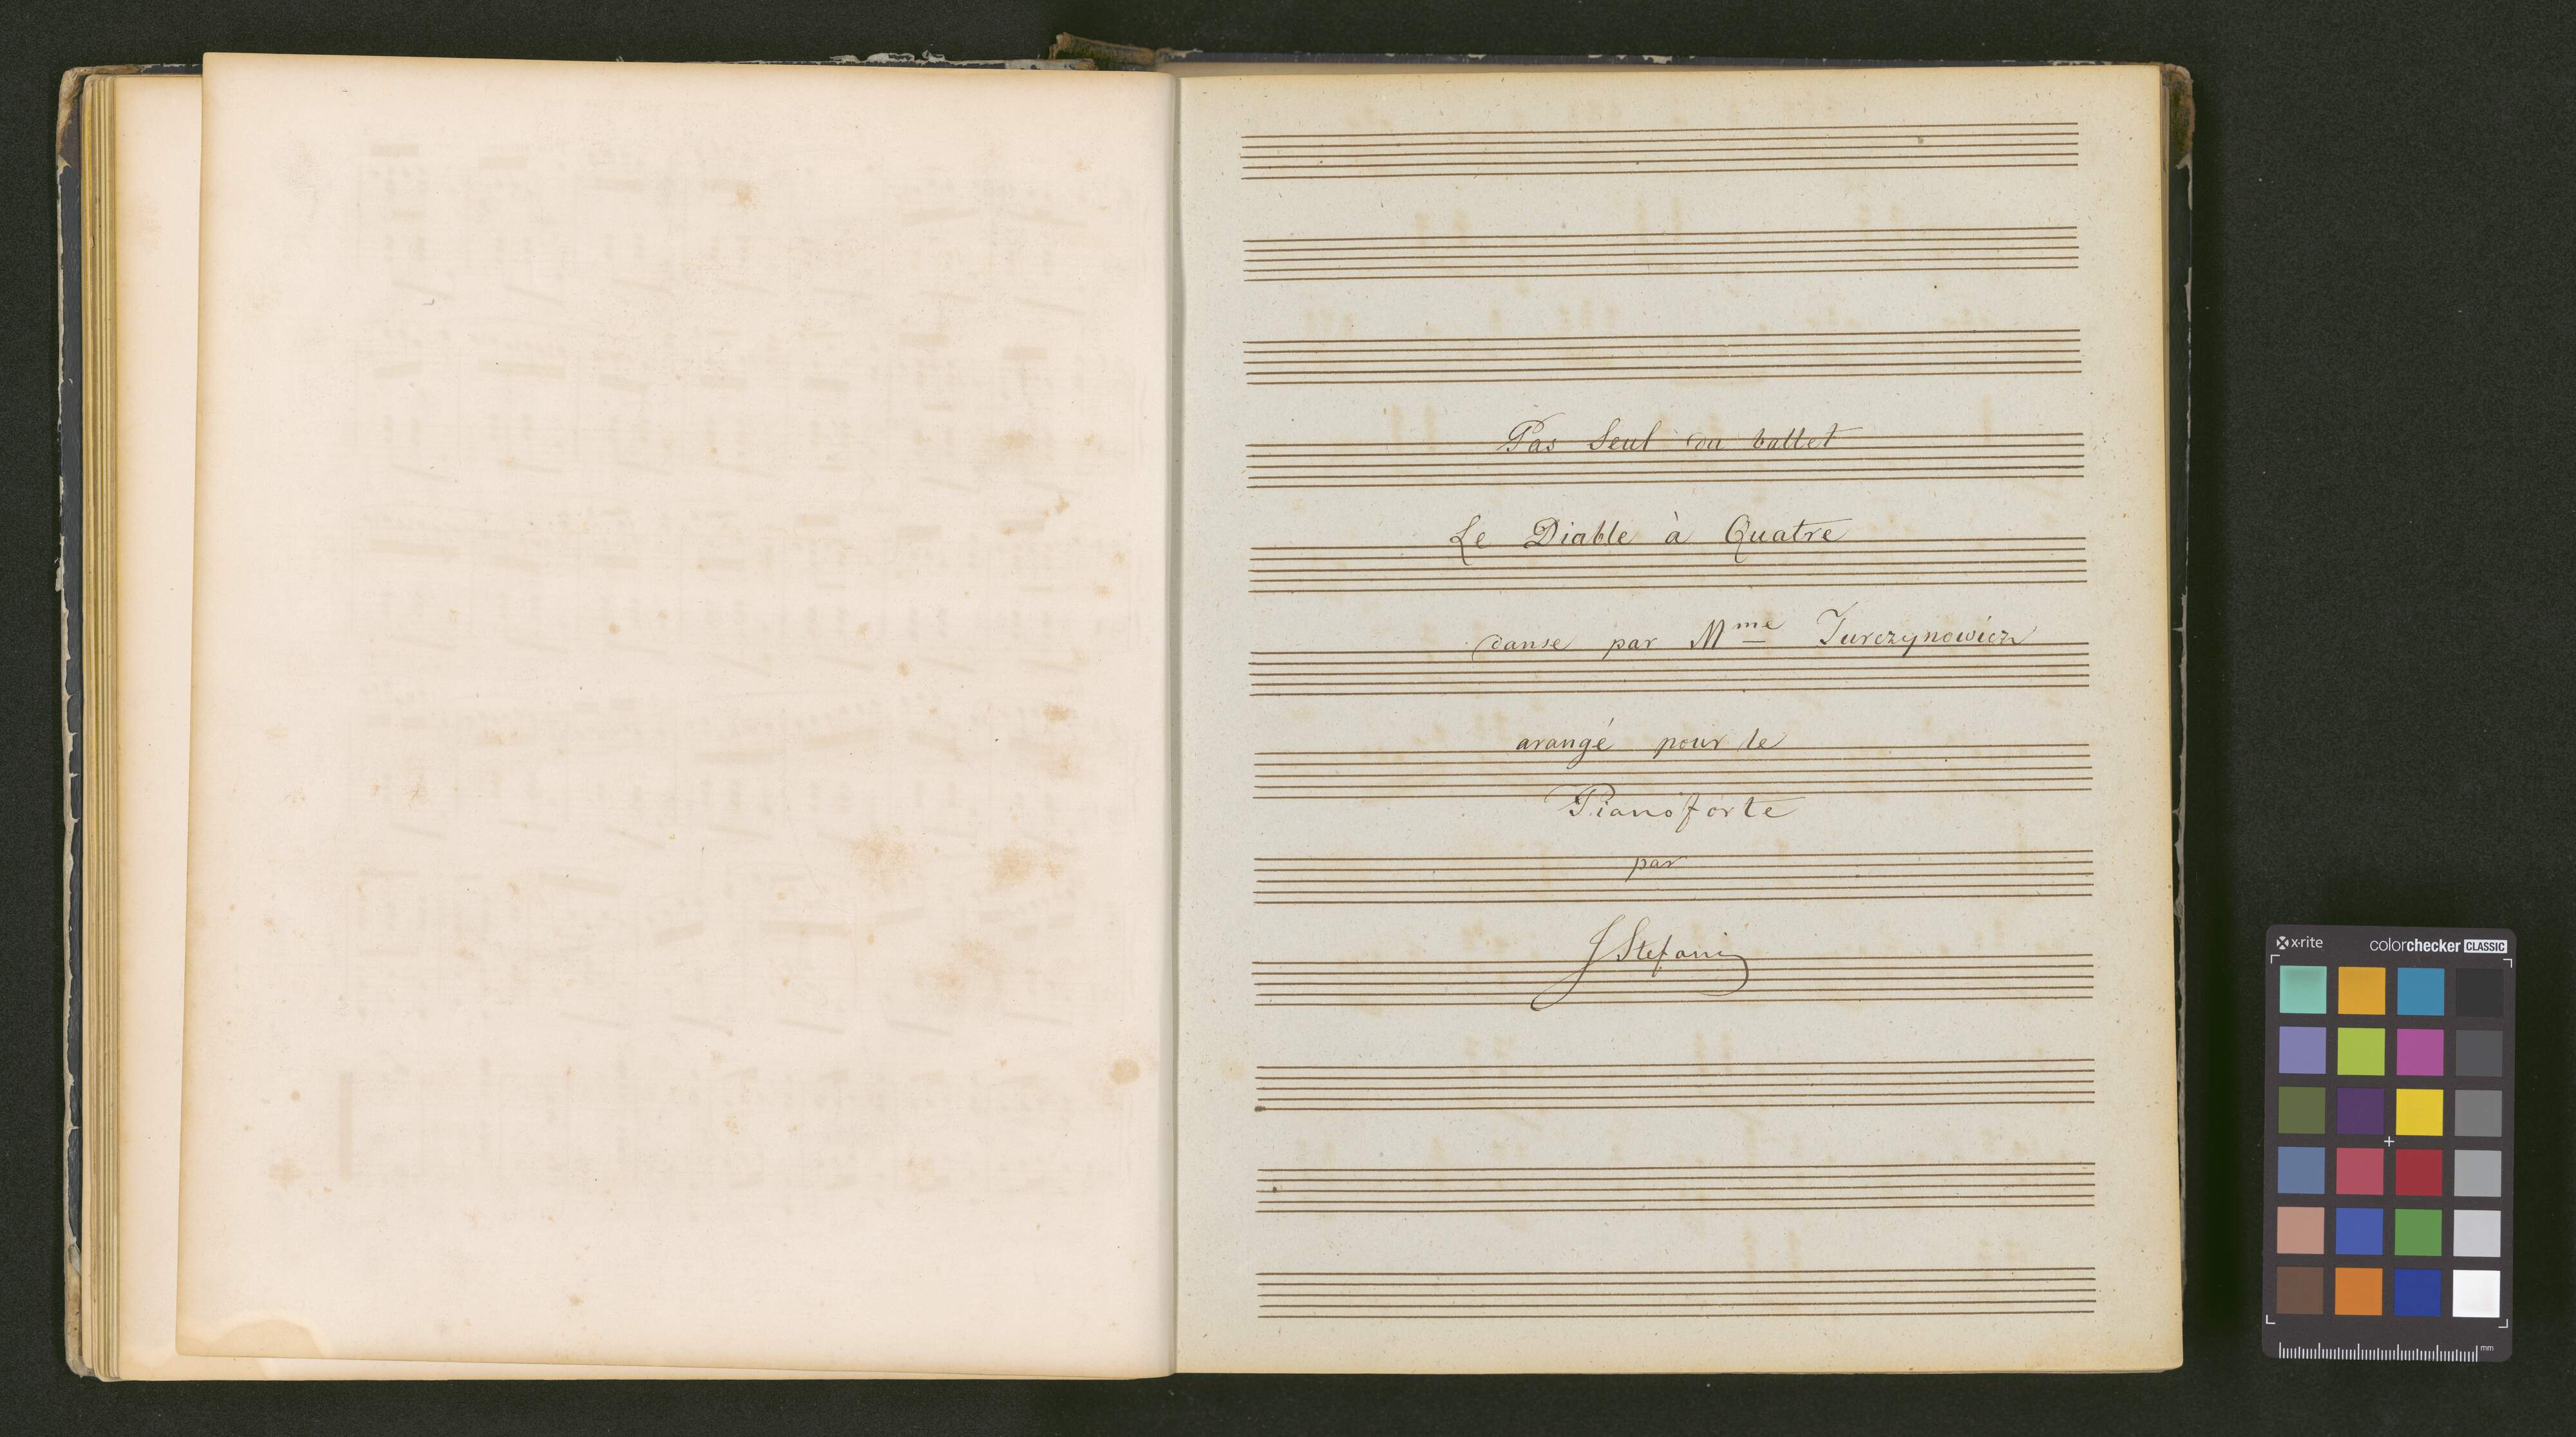 Pas Seul du ballet
Le Diable à Quatre
danse par Mme Turczynowicz
arangé pour le
Pianoforte
par
J Stefani
x-rite colorchecker CLASSIC
mm